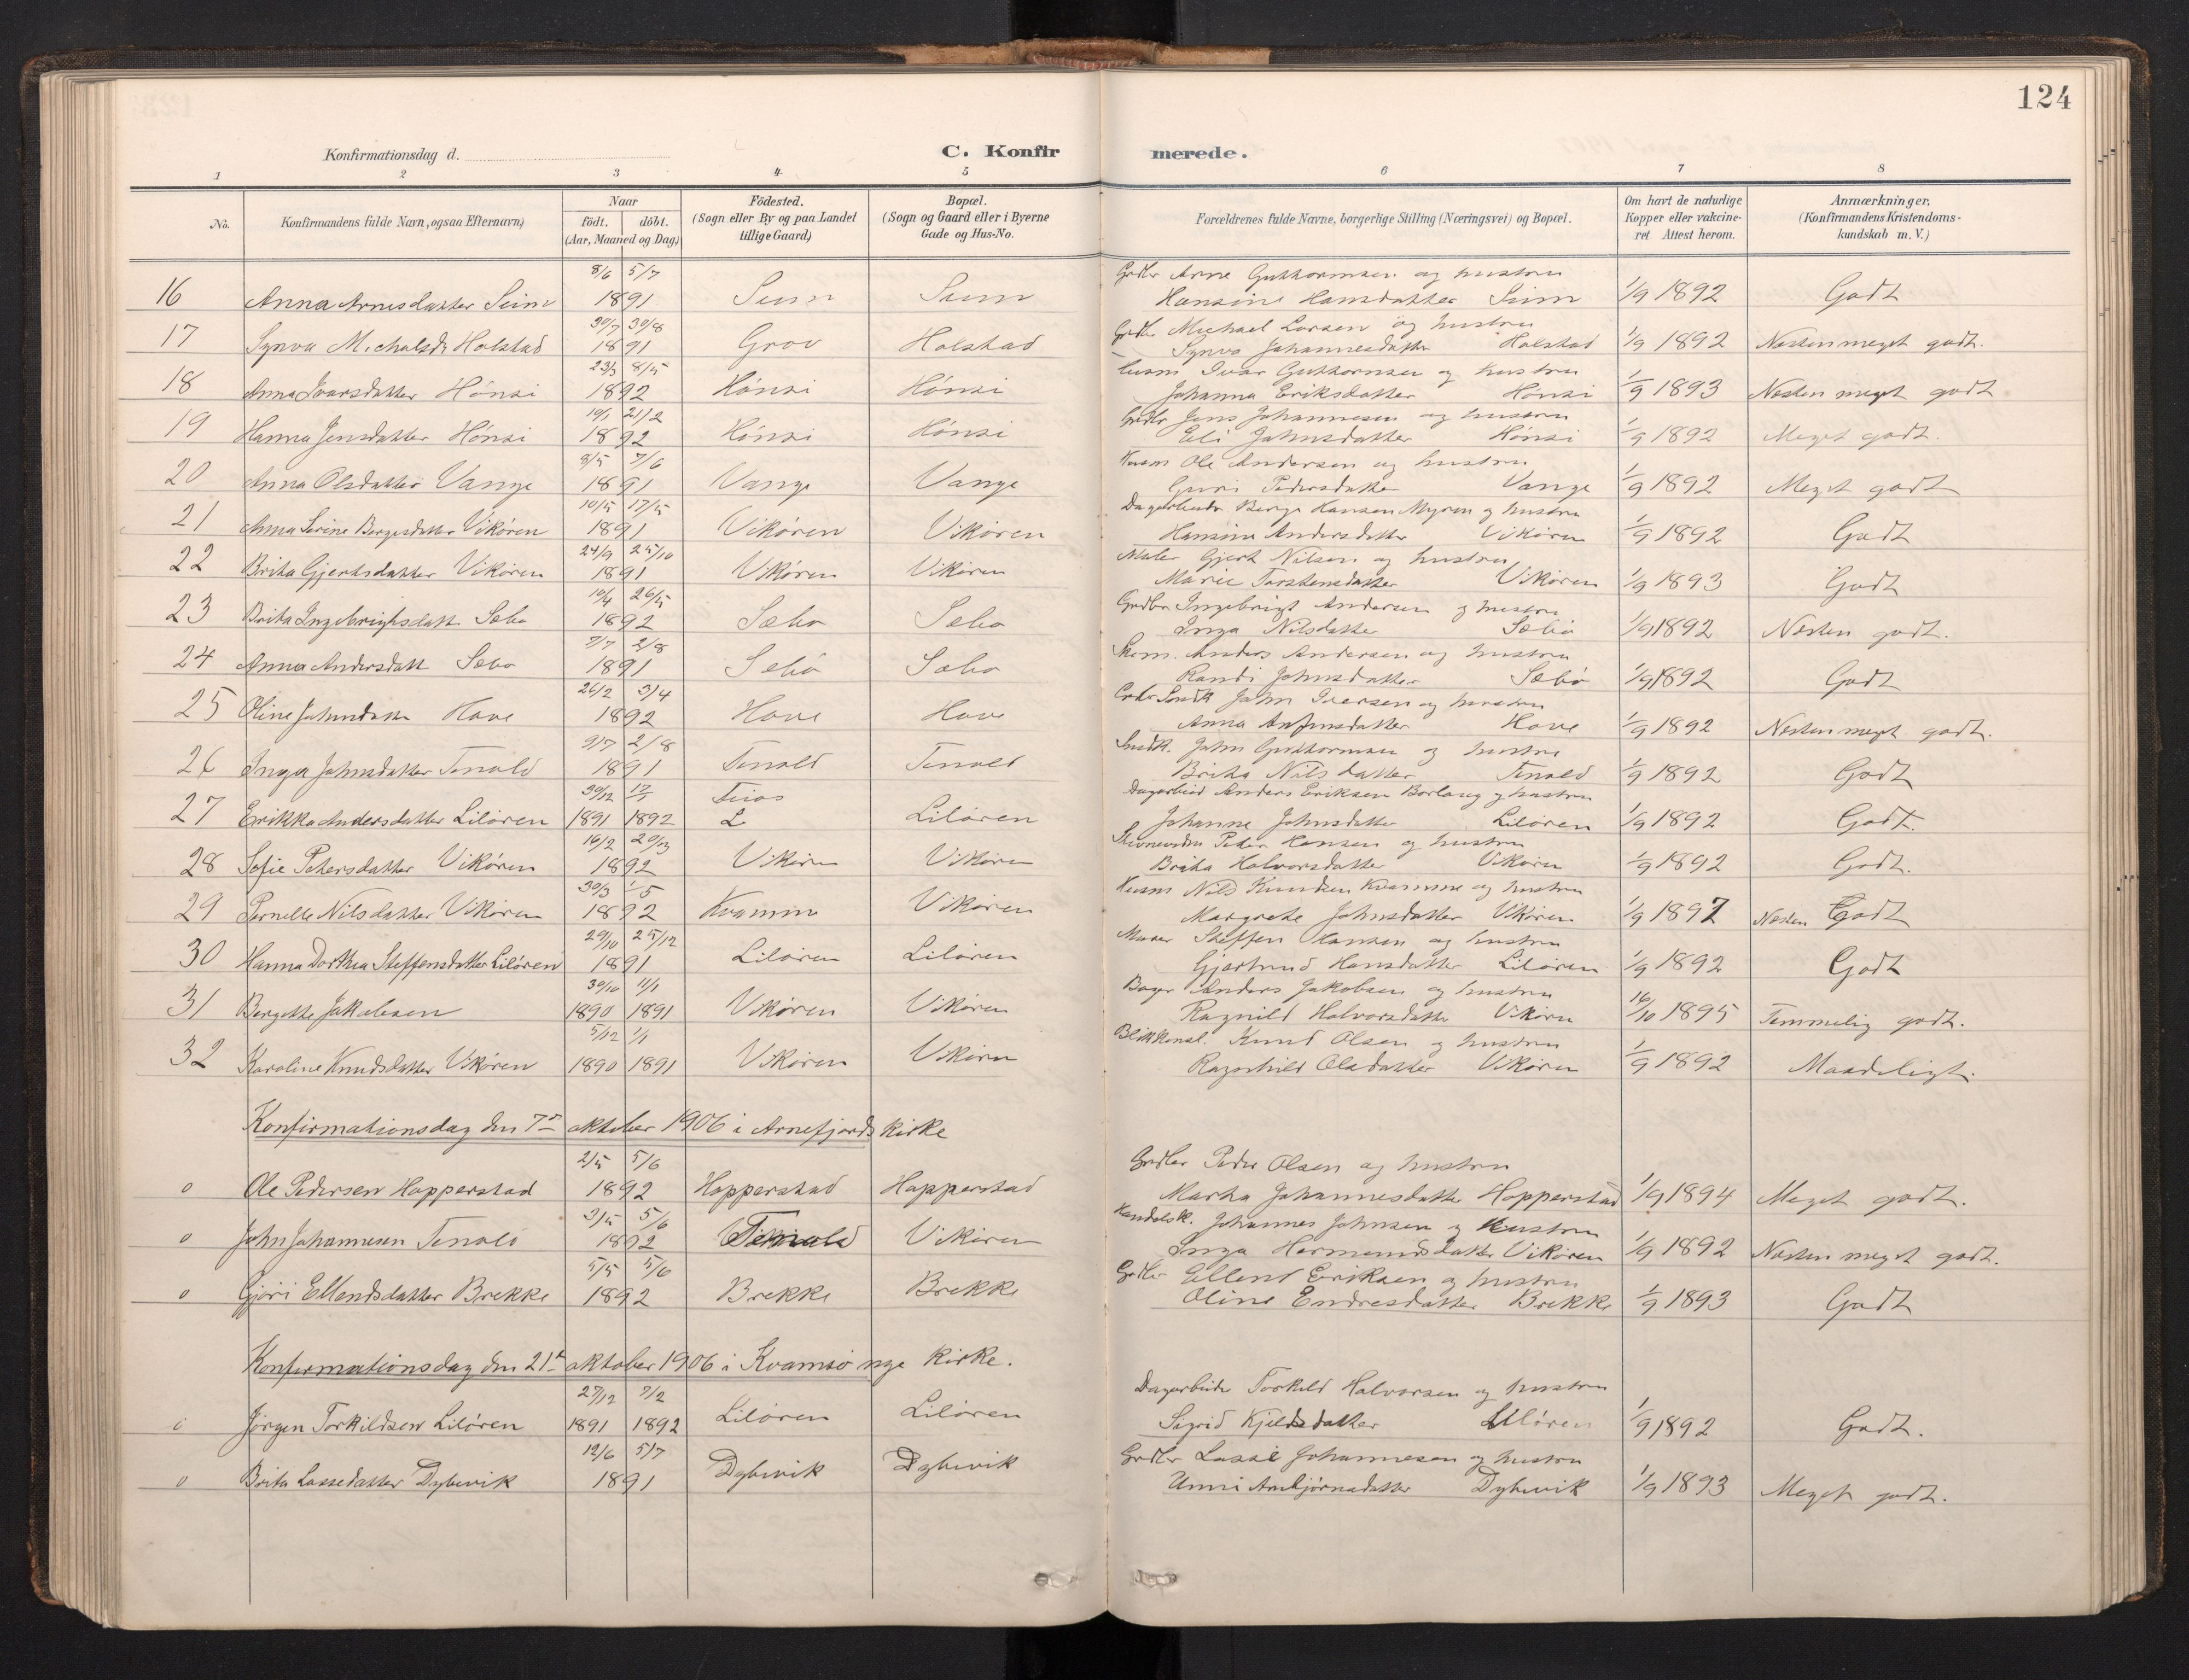 124
Konfirmationsdag d.
C. Konfir merede.
1 2 3 4 5 6 7 8
No. Konfirmandens fulde Navn, ogsaa Efternavn) Naar födt. döbt. (Aar, Maaned og Dag.) Födested. (Sogn eller By og paa Landet tillige Gaard) Bopæl. (Sogn og Gaard eller i Byerne Gade og Hus-No. Forældrenes fulde Navne, borgerlige Stilling (Næringsvei) og Bopæl. Om havt de naturlige Kopper eller vakcineret Attest herom. Anmærkninger, (Konfirmandens Kristendomskundskab m. V.)
8/6 5/7 Grdbr Arne Guttormsen og hustru
16 Anna Arnesdatter Seim 1891 Seim Seim Hansine Hansdatter Seim 1/9 1892 Godt
30/7 30/8 Grdbr Michael Larsen og hustru
17 Synva Michalsdr Holstad 1891 Grov Holstad Synva Johannesdatter Holstad 1/9 1892 Næsten meget godt.
23/3 8/5 Husm Ivar Guttormsen og hustru
18 Anna Ivarsdatter Hönsi 1892 Hönsi Hönsi Johanna Eriksdatter Hönsi 1/9 1893 Næsten meget godt
10/1 21/2 Grdbr Jens Johannesen og hustru
19 Hanna Jensdatter Hönsi 1892 Hönsi Hönsi Eli Johnsdatter Hönsi 1/9 1892 Meget godt.
8/5 7/6 Husm Ole Andersen og hustru
20 Anna Olsdatter Vange 1891 Vange Vange Guri Pedersdatter Vange 1/9 1892 Meget godt
10/5 17/5 Dagarbeider Berge Hansen Myren og hustru
21 Anna Serine Bergesdatter Vikören 1891 Vikören Vikören Hansine Andersdatter Vikören 1/9 1892 Godt
24/9 25/10 Maler Gjert Nilsen og hustru
22 Brita Gjertsdatter Vikören 1891 Vikören Vikören Marie Torstensdatter Vikören 1/9 1893 Godt
10/4 26/5 Grdbr Ingebrigt Andersen og hustru
23 Brita Ingebrigtsdatt. Sæbo 1892 Sæbo Sæbo Inga Nilsdatter Sæbö 1/9 1892 Næsten godt.
7/7 2/8 Skom. Anders Andersen og hustru
24 Anna Andersdatt Sæbo 1891 Sæbö Sæbo Randi Johnsdatter Sæbö 1/9 1892 Godt
26/2 3/4 John Iversen og hustru
25 Oline Johnsdatter Hove 1892 Hove Hove Anna Anfinsdatter Hove 1/9 1892 Næsten meget godt.
9/7 2/8 Snedk. John Guttormsen og hustru
26 Inga Johnsdatter Tenold 1891 Tenold Tenold Brita Nilsdatter Tenold 1/9 1892 Godt
30/12 17/1 Feios Dagarbeid Anders Eriksen Borlaug og hustru
27 Erikka Andersdatter Lilören 1891 1892 L Lilören Johanne Johnsdatter Lilören 1/9 1892 Godt.
16/2 20/3 Peder Hansen og hustru
28 Sofie Petersdatter Vikören 1892 Vikören Vikören Brita Halvorsdatter Vikören 1/9 1892 Godt.
30/3 1/5 Husm Nils Knudsen Kvamme og hustru
29 Pernelle Nilsdatter Vikören 1892 Kvamme Vikören Margrete Johnsdatter Vikören 1/9 1897 Næsten Godt
29/10 25/12 Murer Steffen Hansen og hustru
30 Hanna Dorthea Steffensdatter Lilören 1891 Lilören Lilören Gjertrud Hansdatter Lilören 1/9 1892 Godt
30/10 11/1 Bager Anders Jakobsen og hustru
31 Bergitte Jakobsen 1890 1891 Vikören Vikören Ragnild Halvorsdatter Vikören 16/10 1895 Temmelig godt.
5/12 1/1 Knud Olsen og hustru
32 Karoline Knudsdatter Vikören 1890 1891 Vikören Vikören Ragnhild Olsdatter Vikören 1/9 1892 Maadeligt.
Konfirmationsdag den 7de oktober 1906 i Arnefjords kirke
2/5 5/6 Grdbr Peder Olsen og hustru
o Ole Pedersen Hopperstad 1892 Hopperstad Hopperstad Martha Johannesdatter Hopperstad 1/9 1894 Meget godt.
3/5 5/6 Handelsk. Johannes Johnsen og hustru
o John Johannesen Tenold 1892 Tenold Vikören Inga Hermundsdatter Vikören 1/9 1892 Næsten meget godt.
5/5 5/6 Grdbr Ellend Eriksen og hustru
o Gjöri Ellendsdatter Brekke 1892 Brekke Brekke Oline Endresdatter Brekke 1/9 1893 Godt
Konfirmationsdag den 21de oktober 1906 i Kvamsö nye kirke.
27/12 7/2 Dagarbeider Torkild Halvorsen og hustru
o Jörgen Torkildsen Lilören 1891 1892 Lilören Lilören Sigrid Kjeldsdatter Lilören 1/9 1892 Godt.
12/6 5/7 Grdbr Lasse Johannesen og hustru
o Brita Lassedatter Dybevik 1891 Dybevik Dybevik Unni Arnbjörnsdatter Dybevik 1/9 1893 Meget godt.